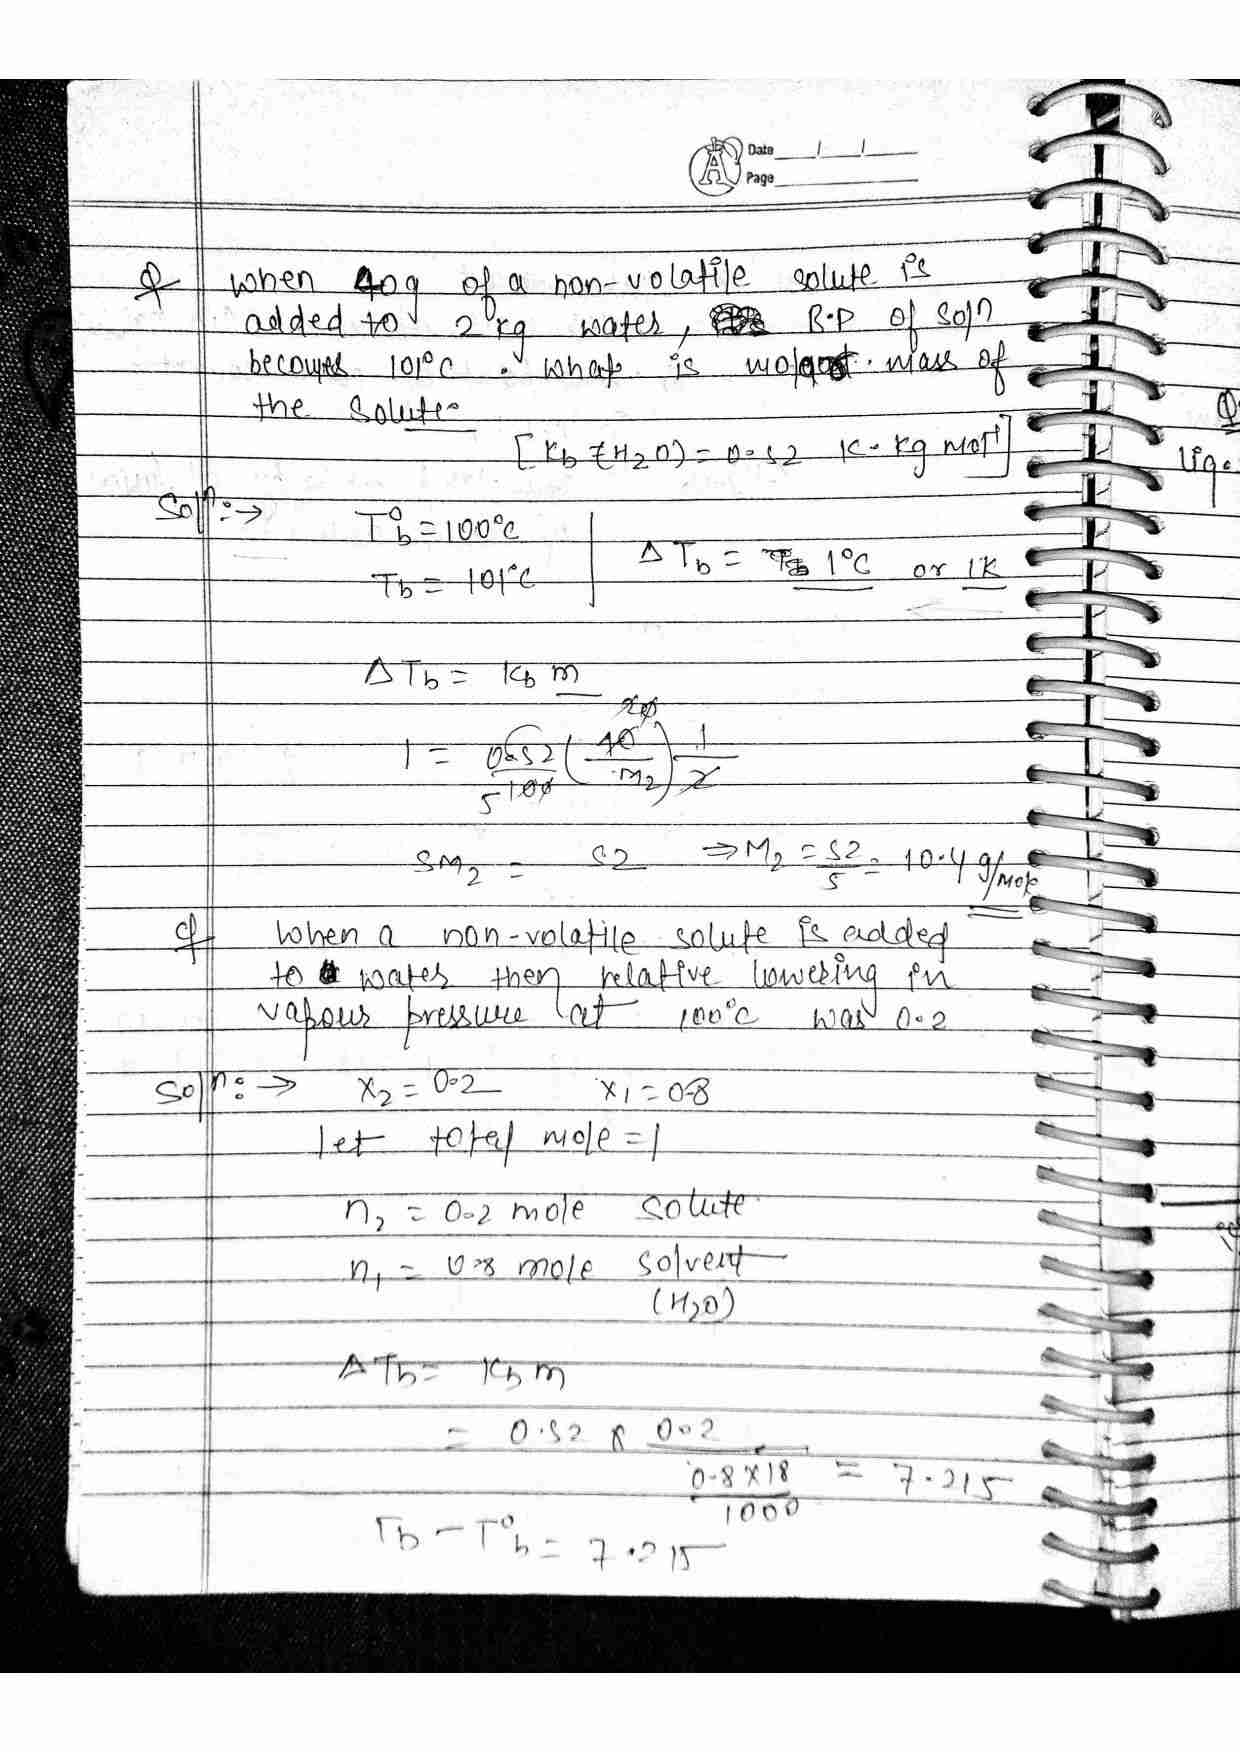 Date / /
Page
Q when 40g of a non-volatile solute is
added to 2 kg water, B.P of soln
becomes 101°C . what is molar mass of
the solute
[Kb (H2O) = 0.52 K.kg mol-1]
Soln:→ T°b = 100°C
Tb = 101°C
ΔTb = 1°C or 1K
ΔTb = Kb m
20
1 = 0.52/100 (40/M2) 1/2
5
5M2 = 52 ⇒ M2 = 52/5 = 10.4 g/mole
Q When a non-volatile solute is added
to water then relative lowering in
vapour pressure at 100°C was 0.2
Soln:→ x2 = 0.2 x1 = 0.8
let total mole = 1
n2 = 0.2 mole solute
n1 = 0.8 mole solvent
(H2O)
ΔTb = Kb m
= 0.52 x 0.2
0.8 x 18 / 1000 = 7.215
Tb - T°b = 7.215
Q.
liq.